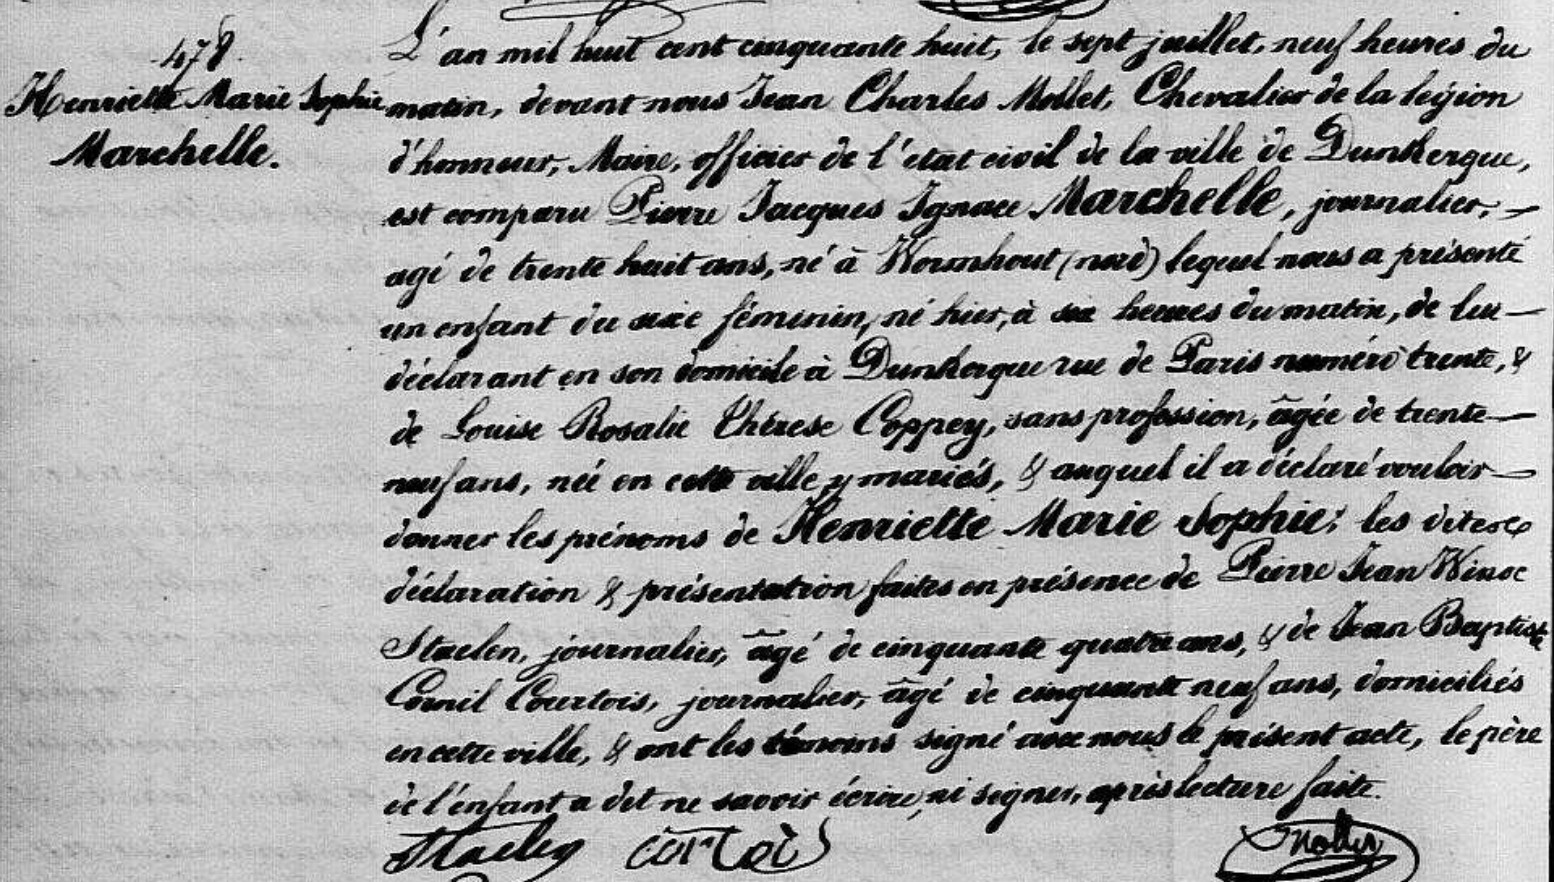 478.
Henriette Marie Sophie
Marchelle.
L'an mil huit cent cinquante huit, le sept juillet, neuf heures du
matin, devant nous Jean Charles Mollet, Chevalier de la légion
d'honneur, Maire, officier de l'état civil de la ville de Dunkerque,
est comparu Pierre Jacques Ignace Marchelle, journalier,
agé de trente huit ans, né à Wormhout (nord) lequel nous a présenté
un enfant du sexe féminin, né hier, à six heures du matin, de lui
déclarant en son domicile à Dunkerque rue de Paris numéro trente, &
de Louise Rosalie Thérèse Coppey, sans profession, âgée de trente
neuf ans, née en cette ville, y mariés, & auquel il a déclaré vouloir
donner les prénoms de Henriette Marie Sophie; les dites
déclaration & présentation faites en présence de Pierre Jean Winoc
Staelen, journalier, âgé de cinquante quatre ans, & de Jean Baptiste
Cornil Courtois, journalier, âgé de cinquante neuf ans, domiciliés
en cette ville, & ont les témoins signé avec nous le présent acte, le père
de l'enfant a dit ne savoir écrire, ni signer, après lecture faite.
Staelen Cortois Mollet